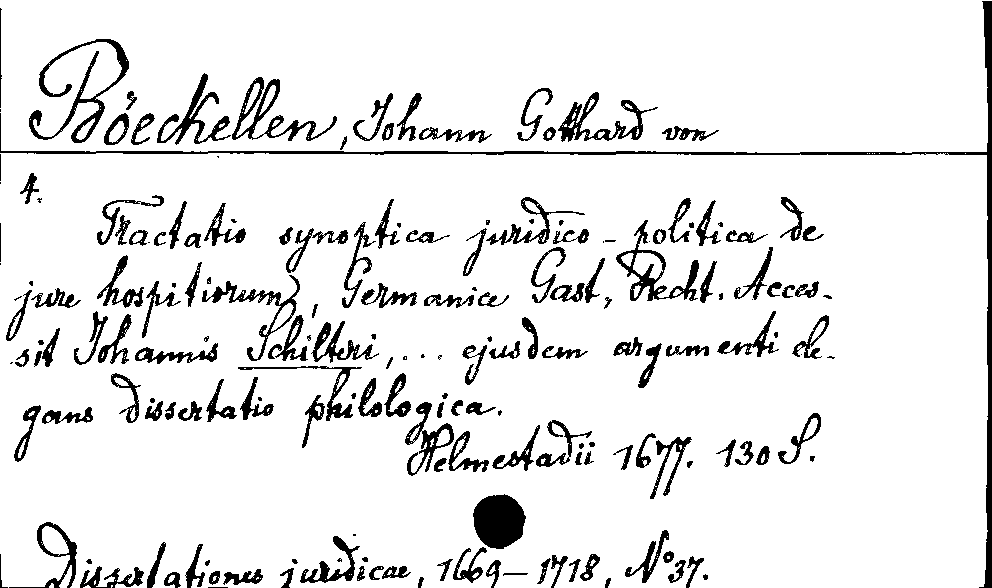 Böeckellen, Johann Gotthard von
4.
Tractatio synoptica juridico-politica de
jure hospitiorum, Germanice Gast, Recht. Acces-
sit Johannis Schilteri, ... ejusdem argumenti ele-
gans dissertatio philologica.
Helmestadii 1677. 130 S.
Dissertationes juridicae, 1669-1718, No 37.